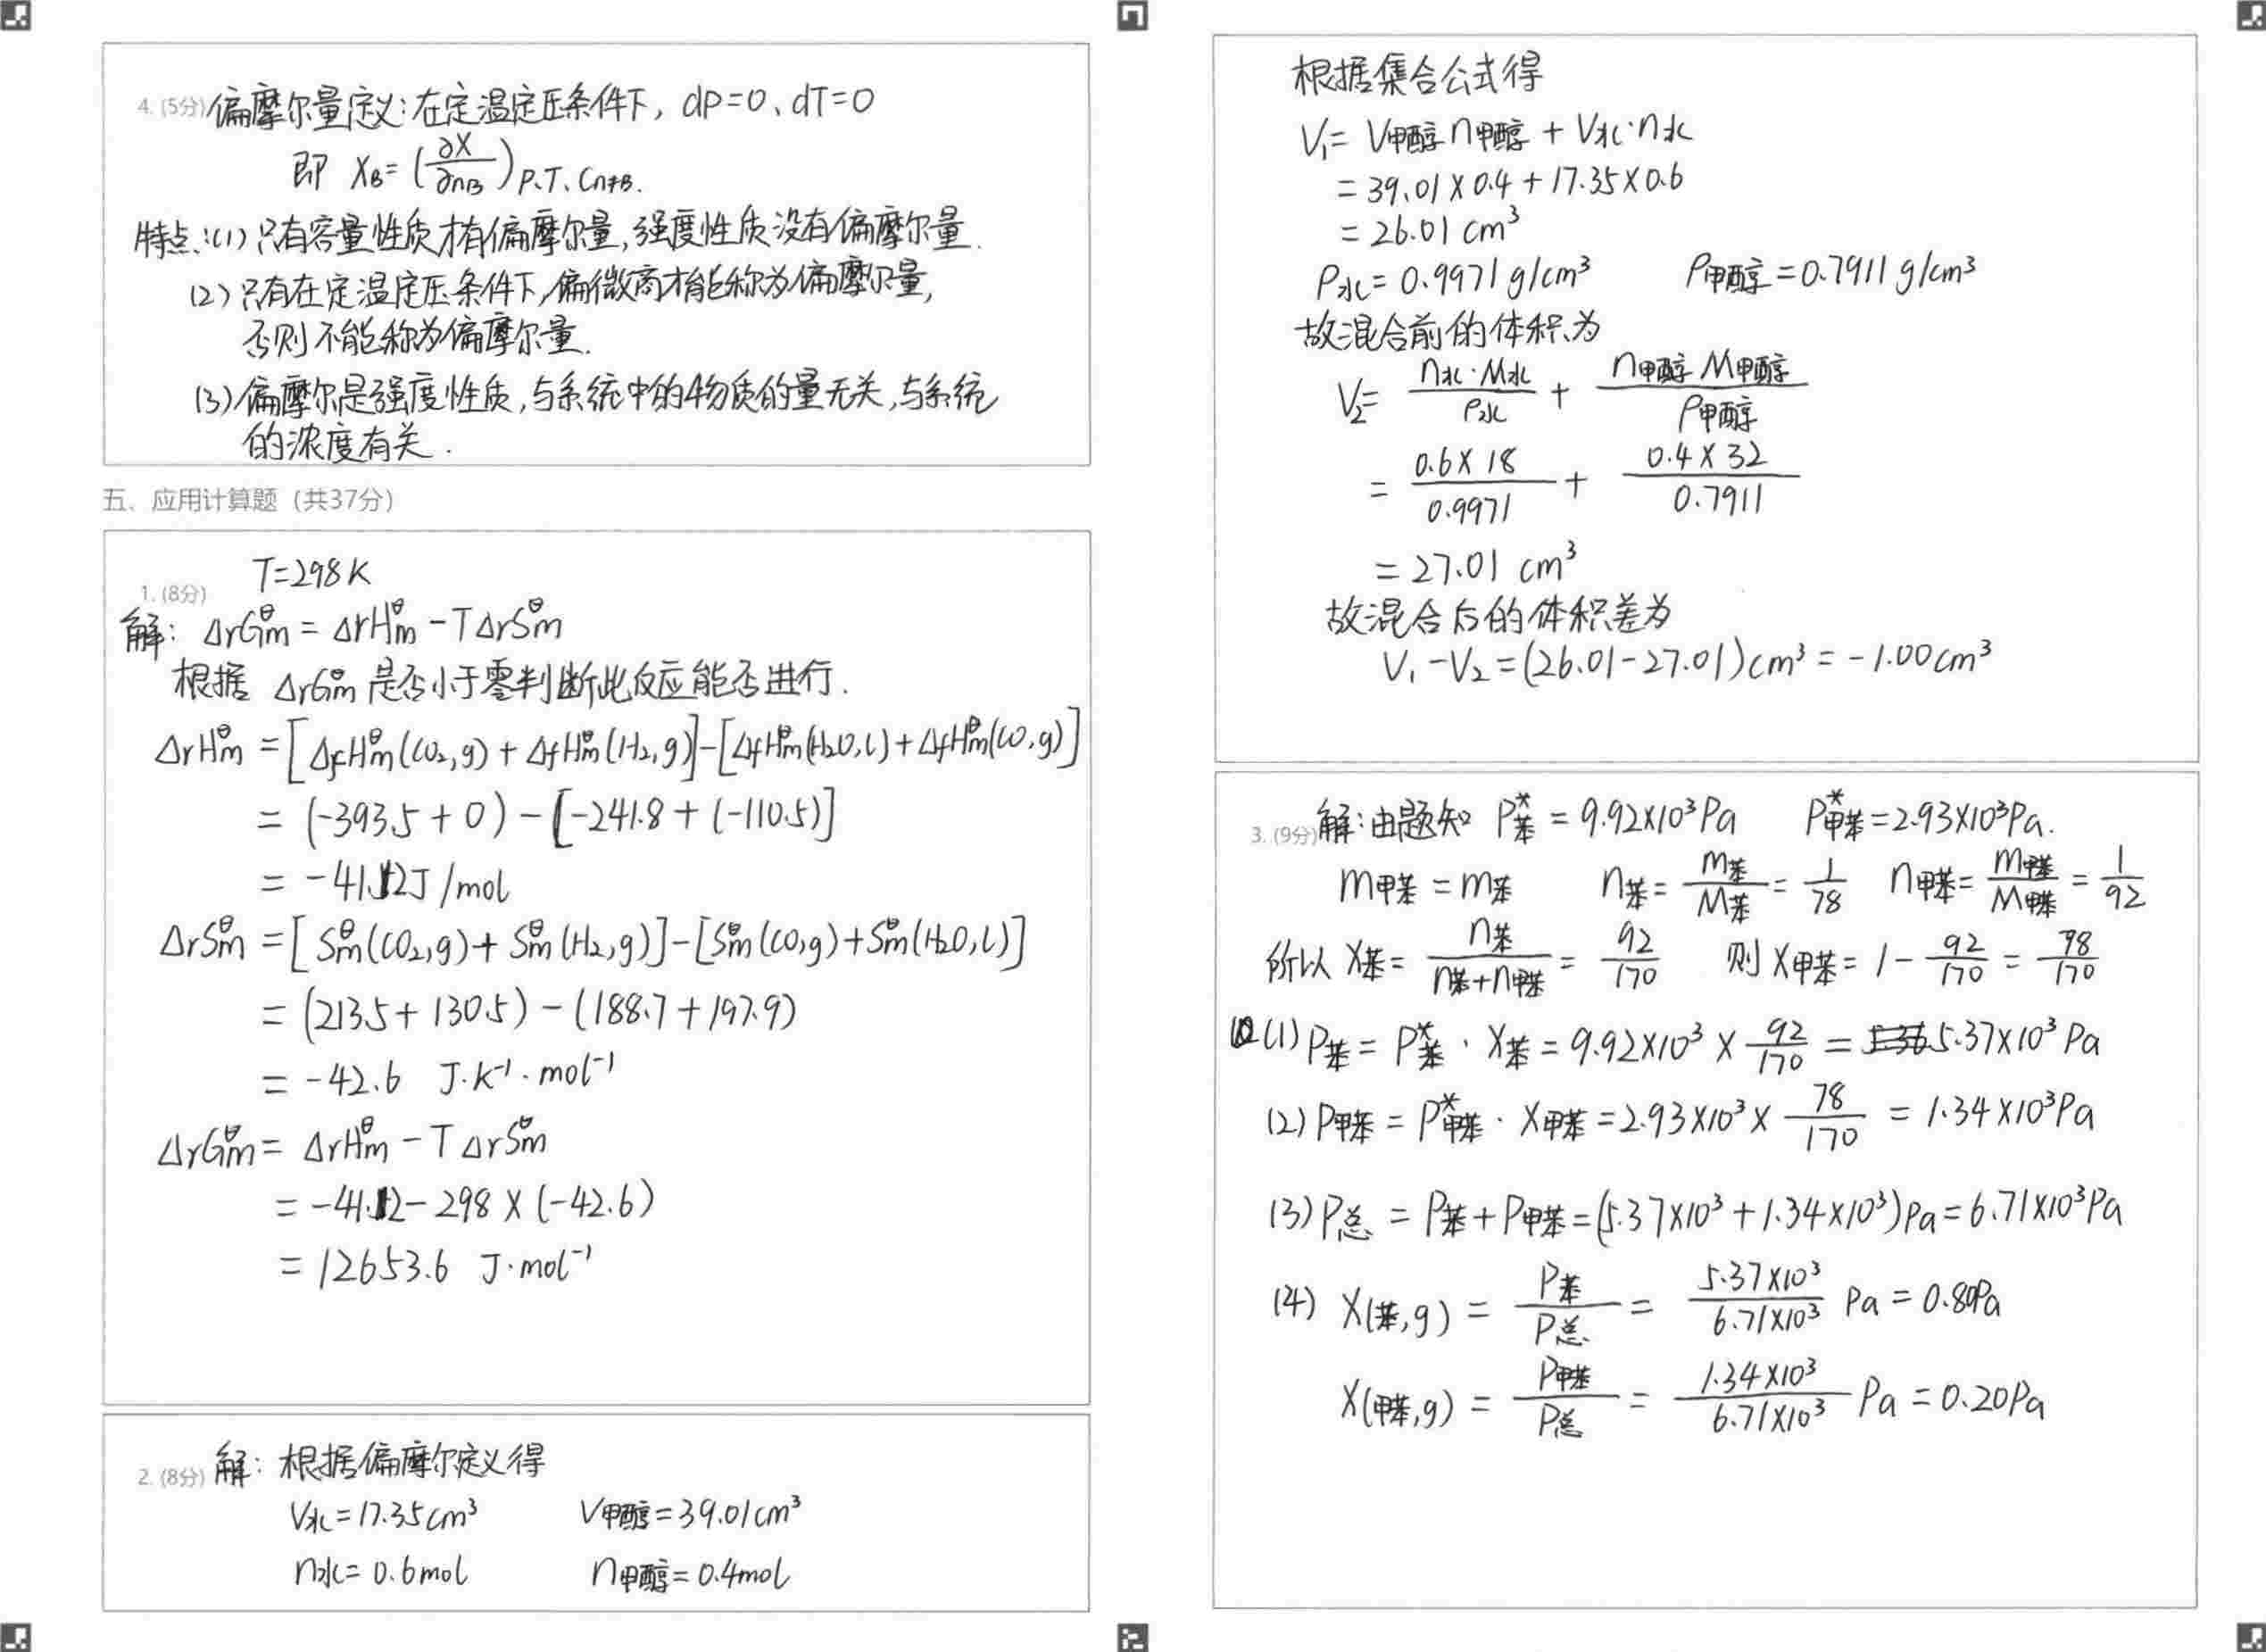 4. (5分) 偏摩尔量定义:在定温定压条件下, dP=0、dT=0
即 X_B=(∂X/∂n_B)_{P.T.Cn≠B}.
特点:(1)只有容量性质才有偏摩尔量,强度性质没有偏摩尔量.
(2)只有在定温定压条件下,偏微商才能称为偏摩尔量,
否则不能称为偏摩尔量.
(3)偏摩尔是强度性质,与系统中的物质的量无关,与系统
的浓度有关.
五、应用计算题 (共37分)
T=298K
1. (8分)
解: ΔrGm^θ = ΔrHm^θ - TΔrSm^θ
根据 ΔrGm^θ 是否小于零判断此反应能否进行.
ΔrHm^θ = [ΔfHm^θ(CO₂,g) + ΔfHm^θ(H₂,g)]-[ΔfHm^θ(H₂O,l)+ΔfHm^θ(CO,g)]
= (-393.5+0)-[-241.8+(-110.5)]
= -41.2J/mol
ΔrSm^θ = [Sm^θ(CO₂,g)+Sm^θ(H₂,g)]-[Sm^θ(CO,g)+Sm^θ(H₂O,l)]
= (213.5+130.5)-(188.7+197.9)
= -42.6 J·K⁻¹·mol⁻¹
ΔrGm^θ = ΔrHm^θ - TΔrSm^θ
= -41.2-298×(-42.6)
= 12653.6 J·mol⁻¹
2. (8分) 解: 根据偏摩尔定义得
V水=17.35cm³ V甲醇=39.01cm³
n水=0.6mol n甲醇=0.4mol
根据集合公式得
V₁= V甲醇n甲醇+V水·n水
=39.01×0.4+17.35×0.6
=26.01 cm³
ρ水=0.9971g/cm³ ρ甲醇=0.7911g/cm³
故混合前的体积为
V₂= n水·M水/ρ水 + n甲醇M甲醇/ρ甲醇
= 0.6×18/0.9971 + 0.4×32/0.7911
=27.01 cm³
故混合后的体积差为
V₁-V₂=(26.01-27.01)cm³=-1.00cm³
3. (9分) 解:由题知 P*苯=9.92×10³Pa P*甲苯=2.93×10³Pa.
m甲苯=m苯 n苯=m苯/M苯=1/78 n甲苯=m甲苯/M甲苯=1/92
所以 X苯=n苯/(n苯+n甲苯)=92/170 则X甲苯=1-92/170=78/170
(1)P苯=P*苯·X苯=9.92×10³×92/170=5.37×10³Pa
(2)P甲苯=P*甲苯·X甲苯=2.93×10³×78/170=1.34×10³Pa
(3)P总=P苯+P甲苯=(5.37×10³+1.34×10³)Pa=6.71×10³Pa
(4) X(苯,g)=P苯/P总=5.37×10³/6.71×10³ Pa=0.80Pa
X(甲苯,g)=P甲苯/P总=1.34×10³/6.71×10³ Pa=0.20Pa